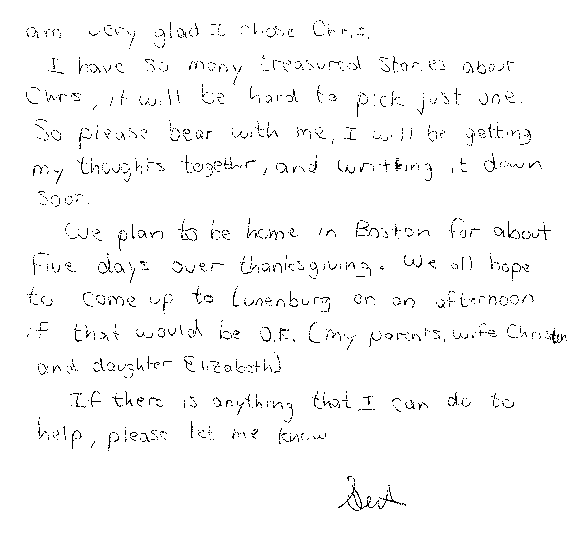 am very glad I chose Chris.
I have so many treasured stories about
Chris, it will be hard to pick just one.
So please bear with me, I will be getting
my thoughts together, and writting it down
soon.
We plan to be home in Boston for about
five days over thanksgiving. We all hope
to come up to Lunenburg on an afternoon
if that would be O.K. (my parents, wife Christen
and daughter Elizabeth)
If there is anything that I can do to
help, please let me know